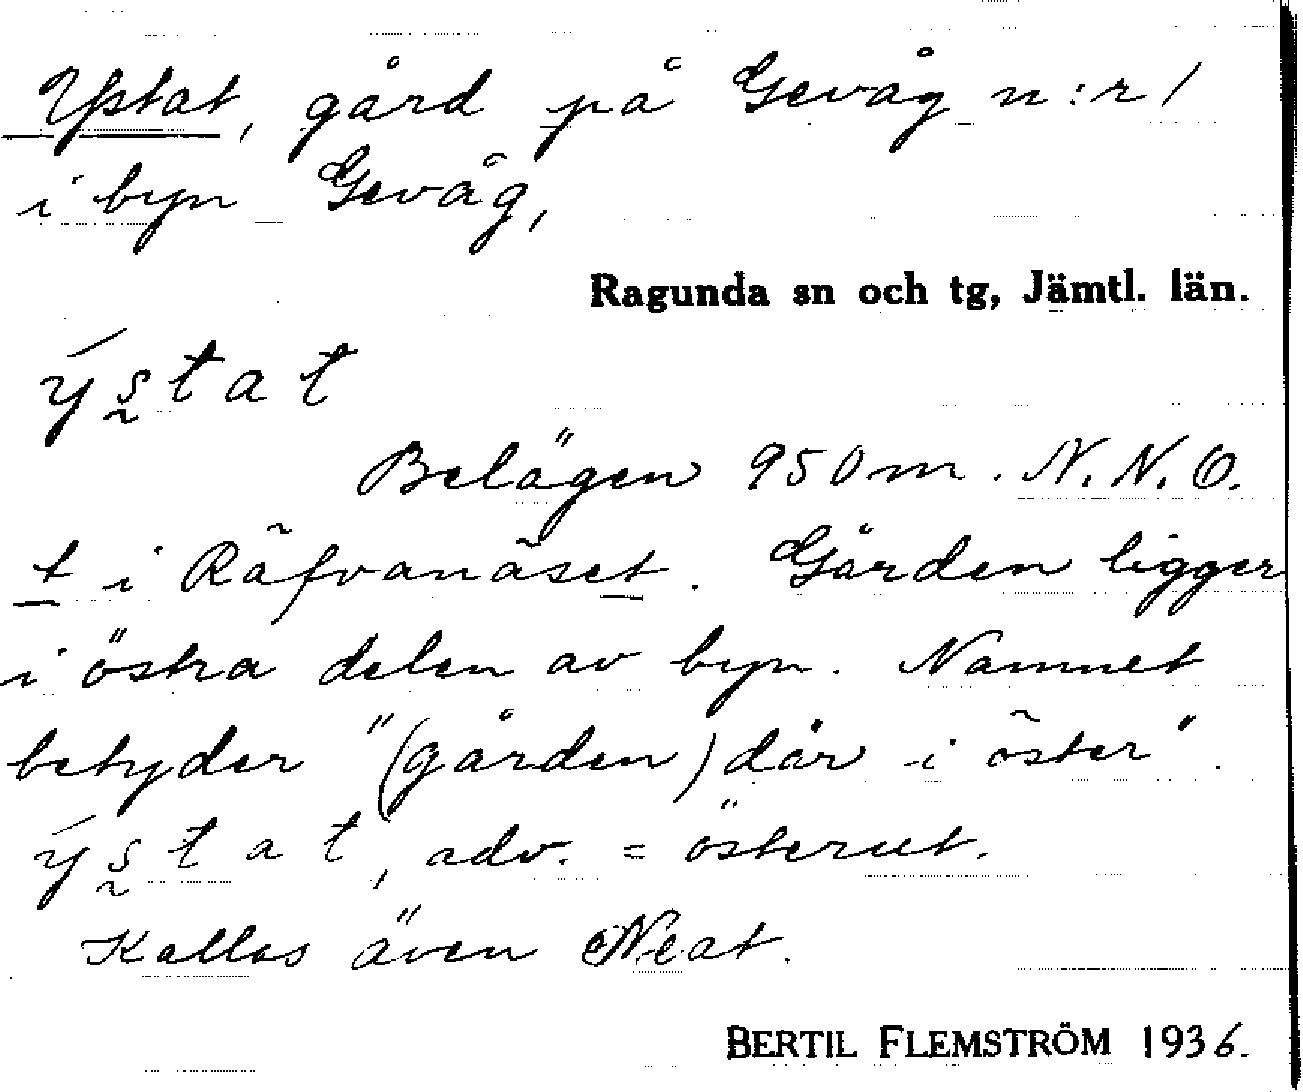 Ystat, gård på Gevåg n:r 1
i byn Gevåg,
Ragunda sn och tg, Jämtl. län.
ýs̰tat
Belägen 950 m. N.N.O.
t i Räfvanäset. Gården ligger
i östra delen av byn. Namnet
betyder "(gården) där i öster".
ýs̰tat, adv. = österut.
Kallas även Neat.
BERTIL FLEMSTRÖM 1936.